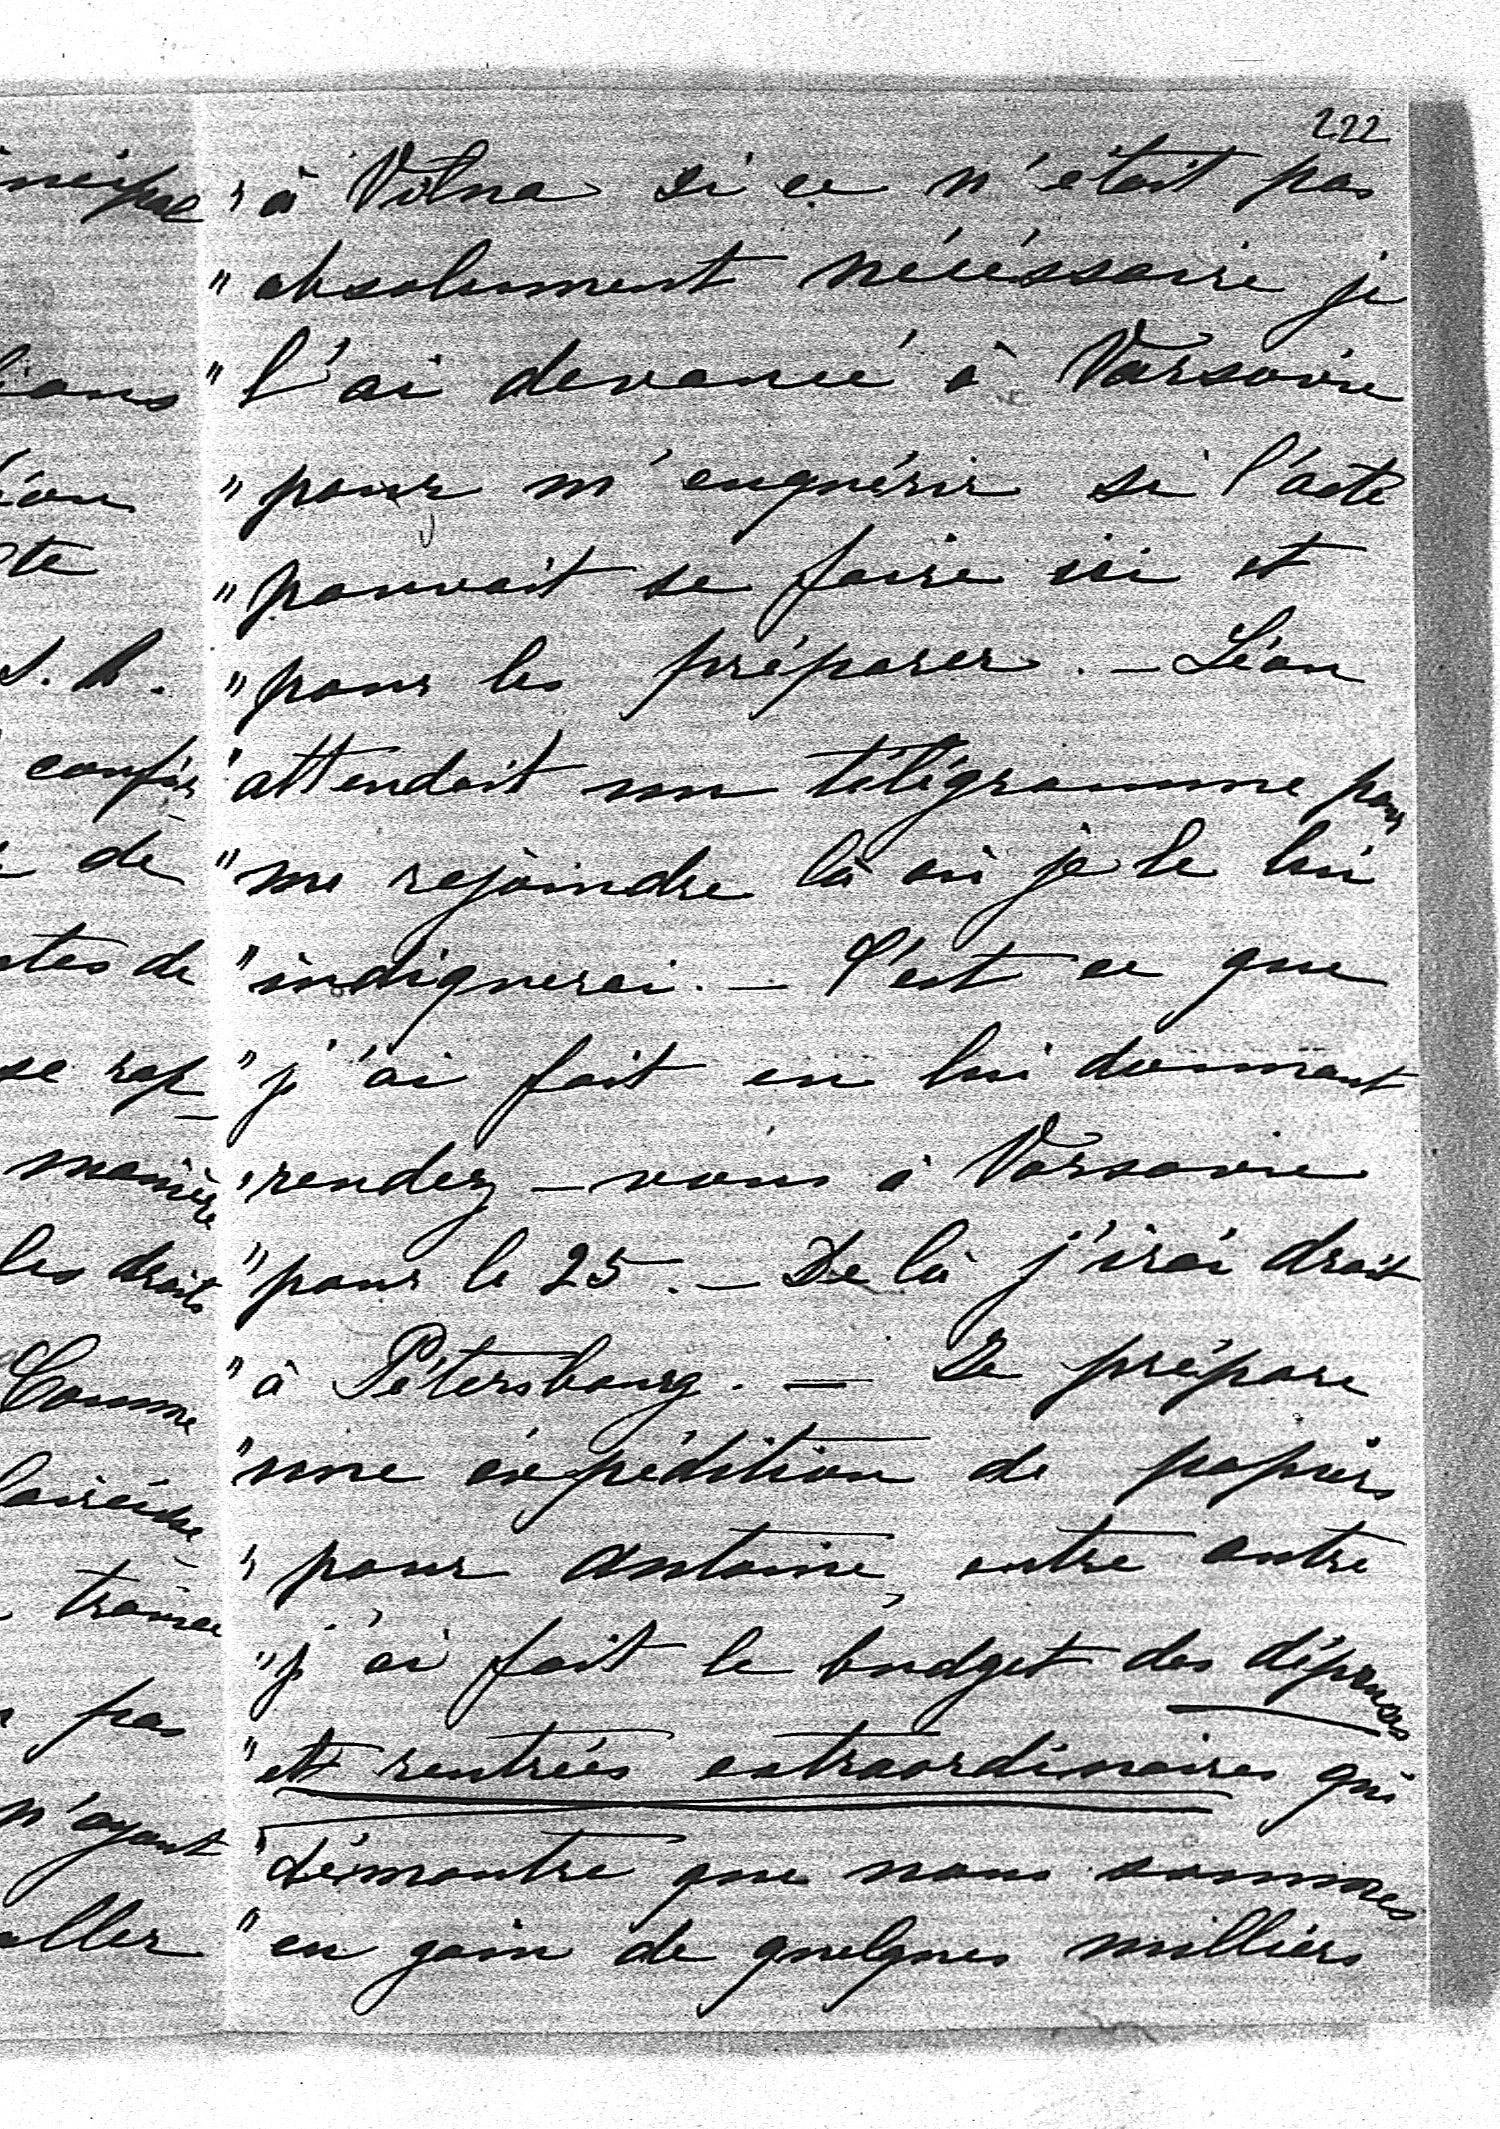 222
" à Vilna si ce n'était pas
" absolument nécéssaire je
" l'ai devancé à Varsovie
" pour m'enquérir si l'acte
" pouvait se faire ici et
" pour les préparer. — Léon
" attendait un télégramme pour
" me rejoindre là où je le lui
" indiquerai. — C'est ce que
" j'ai fait en lui donnant
" rendez-vous à Varsovie
" pour le 25. — De là j'irai droit
" à Pétersbourg. — Je prépare
" une éxpédition de papiers
" pour Antoine, entre autre
" j'ai fait le budget des dépenses
" et rentrées extraordinaires qui
" démontre que nous sommes
" en gain de quelques milliers
lions
confir
de
ctes de
se rap-
manière
les droits
Comme
pas
n'ayant
aller